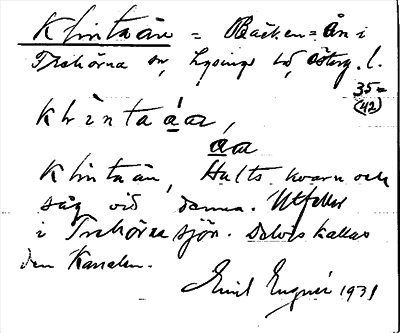 Klintaån = Bäcken = Ån i
Trehörna sn, Lysings hd, Österg. l.
35=
(42)
klìntaáar,
áa
Klintaån, Hults kvarn och
såg vid denna. Utfaller
i Trehörnasjön. Delvis kallas
den Kanalen.
Emil Engnér 1931